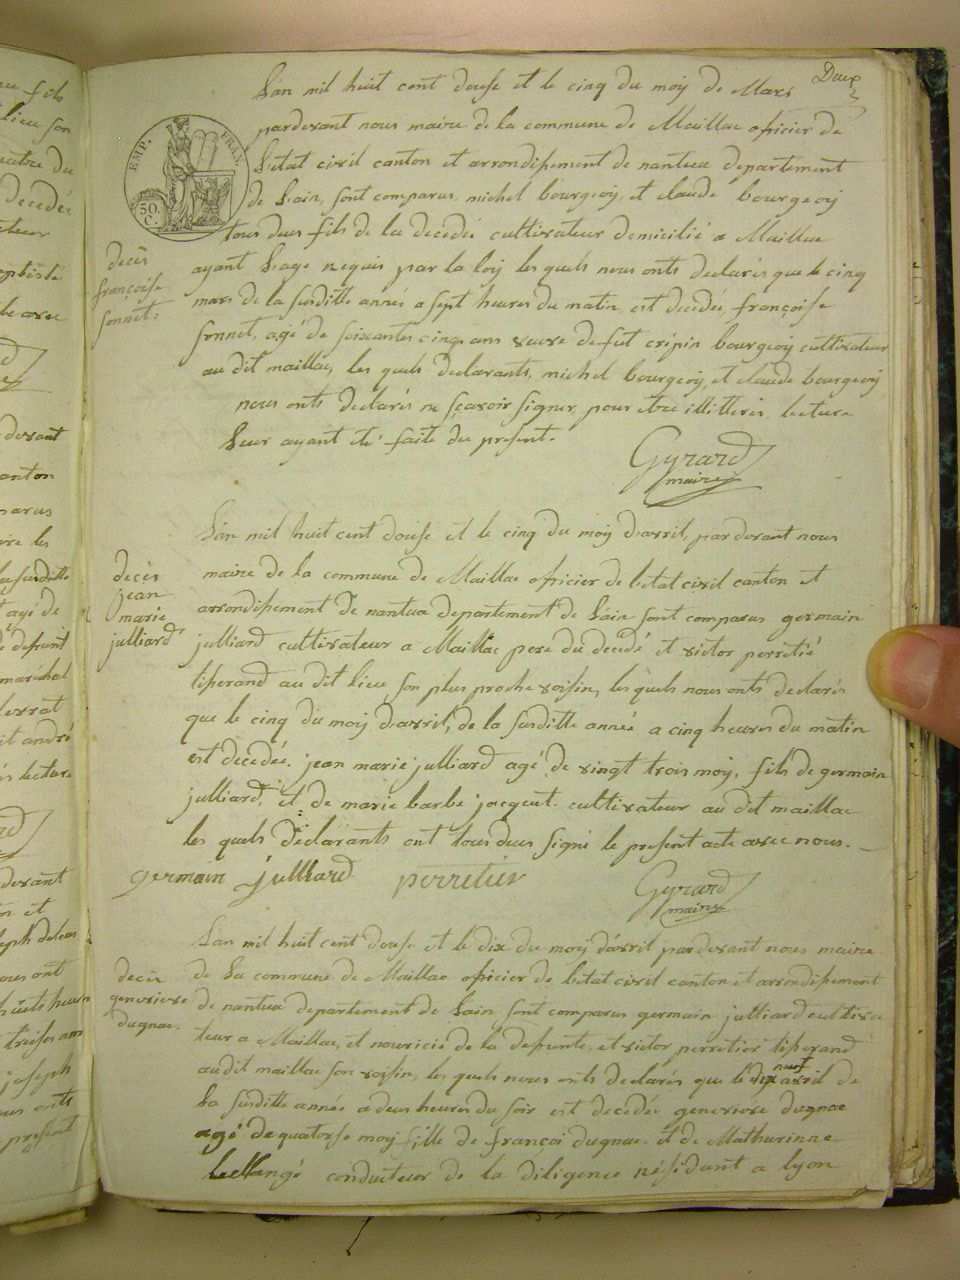 Deux
L'an mil huit cent douse et le cinq du moy de Mars
pardevant nous maire de la commune de Maillac officier de
L'etat civil canton et arrondissement de nantua departement
de Lain, sont comparus, michel bourgeoy, et claude bourgeoy
tous deux fils de la decedée cultivateur domicilié a Maillac
ayant L'age requis par la loy les quels nous onts declarés que le cinq
mars de la susditte année a sept heures du matin est decedée, françoise
sonnet, agé de soixantes cinq ans veuve de fut crépin bourgeoy cultivateur
au dit maillac, les quels declarants, michel bourgeoy, et claude bourgeoy
nous onts declarés ne sçavoir signer, pour etre illitterés, lecture
Leur ayant été faite du present.
EMP. FRAN.
50. C.
decès
françoise
sonnet.
Gyrard
maire
L'an mil huit cent douse et le cinq du moy d'avril, pardevant nous
maire de la commune de Maillac officier de l'etat civil canton et
arrondissement de nantua departement de Lain sont comparus germain
julliard cultivateur a Maillac pere du decedé et victor perretié
tisserand au dit lieu, son plus proche voisin, les quels nous onts declarés
que le cinq du moy d'avril, de la susditte année a cinq heures du matin
est decedée. jean marie julliard agé de vingt trois moy, fils de germain
julliard, et de marie barbe jacquet. cultivateur au dit maillac
les quels declarants ont tous deux signé le present acte avec nous.
decès
jean
marie
julliard
germain julliard perretier
Gyrard
maire
L'an mil huit cent douse et le dix du moy d'avril pardevant nous maire
de La commune de Maillac officier de l'etat civil canton et arrondissement
de nantua departement de Lain, sont comparus germain julliard cultiva
teur a Maillac, et nouricié de la defunte, et victor perretier tisserand
au dit maillac son voisin, les quels nous onts declarés que le neuf avril de
La susditte année a deux heures du soir est decedée genevieve dugnac
agé de quatorse moy fille de françoi dugnac et de Mathurinne
conducteur de la diligence résidant a lyon
decès
genevieve
dugnac.